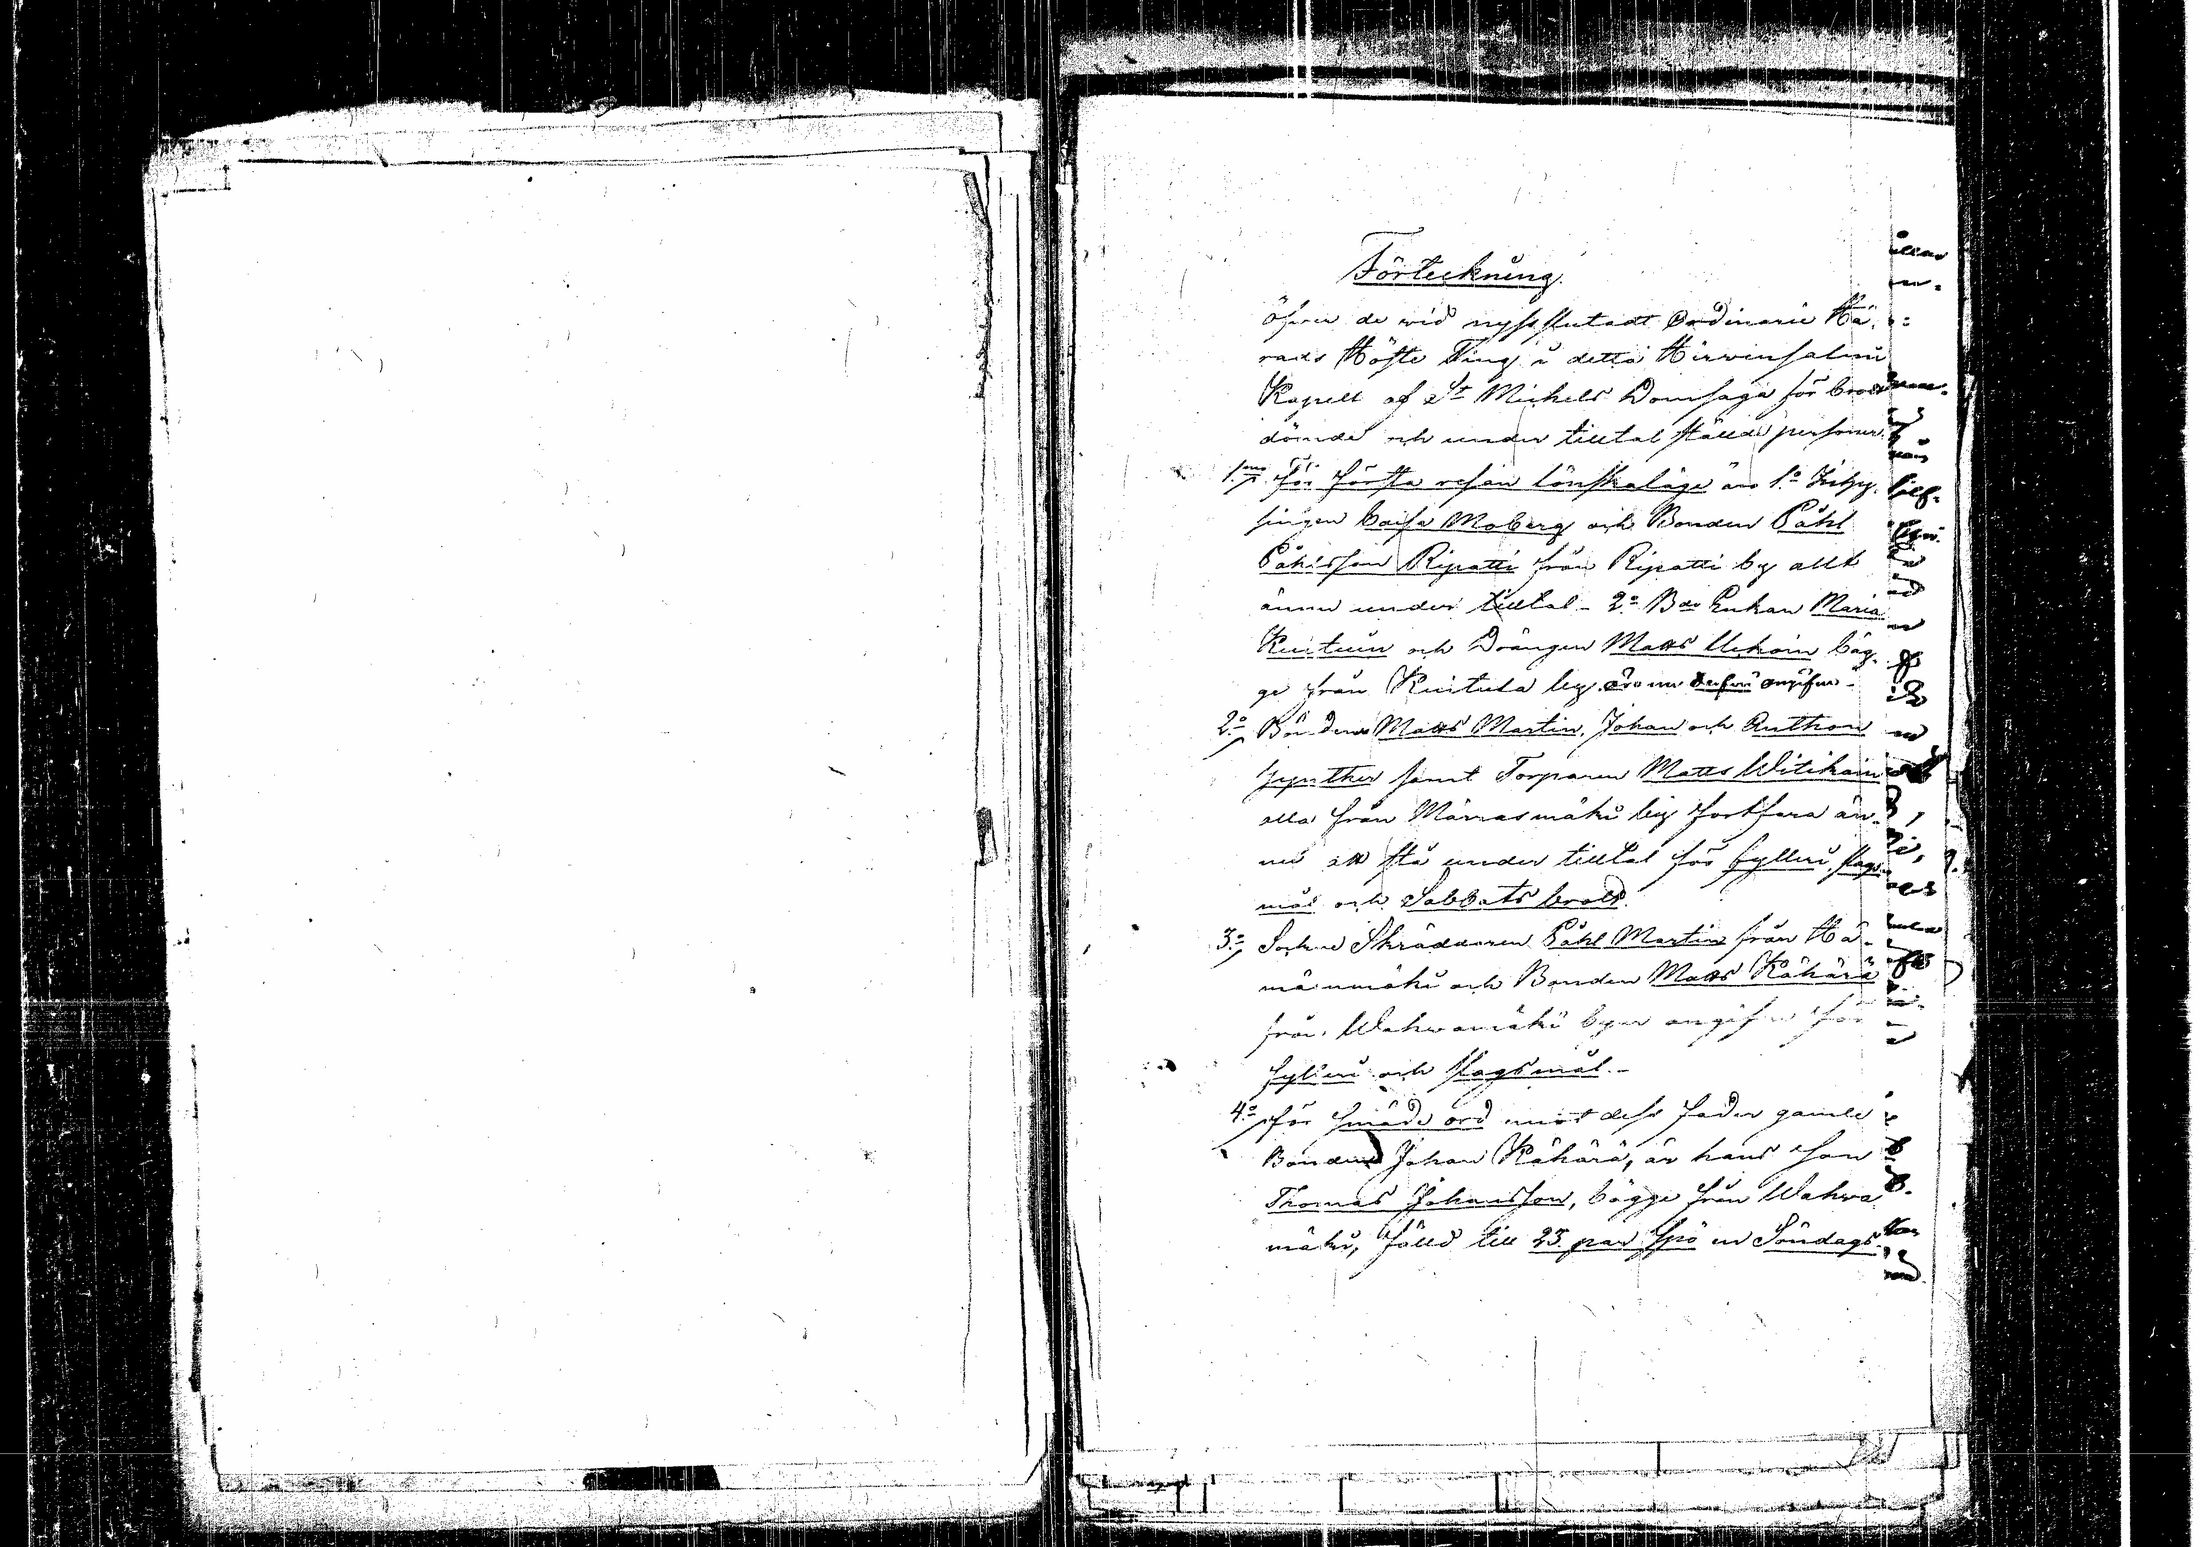 Förteckning
öfver de wid nyss slutadt Ordinarie Hä-
rads Höste Ting i detta Hirvinsalmi
Kapell af St Michels Domsaga för brott
dömde och under tilltal stälde personer.
1mo För första resan lönskaläge äro 1o Inhy-
singen Caisa Moberg och Bonden Påhl
Påhlsson Ripatti från Ripatti by allt
ännu under tilltal - 2o Bde Enkan Maria
Kuitun och Drängen Matts Ukoin bäg-
ge från Kuitula by äro nu angifne -
2o Bönderne Matts Martin, Johan och Anthon
samt Torparen Matts Witikain
alla från Marrasmäki by fortfara än-
nu att stå under tilltal för fylleri, slags-
mål och Sabbats brott.
3o Sockne Skräddaren Påhl Martin från Hä-
mänmäki och Bonden Matts Kähärä
från Wahwamäki byar angifne för
fylleri och slagsmål. -
4o för smäde ord mot dess fader gamle
Bonden Johan Kähärä, är hans son
Thomas Johansson, bägge från Wahwa
mäki, fälld till 25 par spö en Söndags